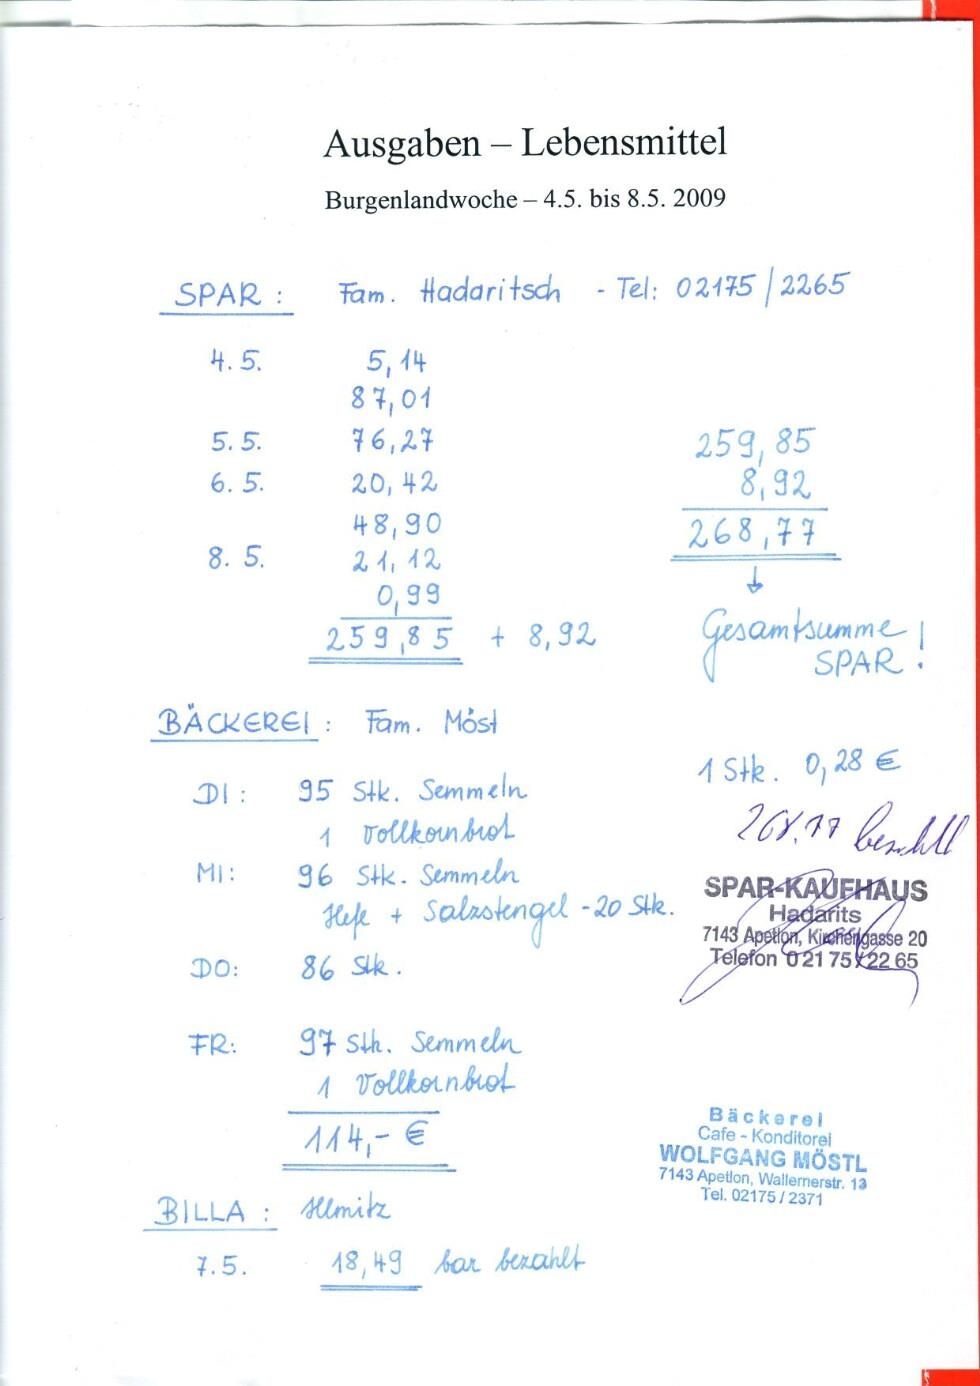 Ausgaben – Lebensmittel
Burgenlandwoche – 4.5. bis 8.5. 2009
SPAR : Fam. Hadaritsch - Tel: 02175/2265
4.5. 5,14
87,01
5.5. 76,27
6.5. 20,42
48,90
8.5. 21,12
0,99
259,85 + 8,92
259,85
8,92
268,77
↓
Gesamtsumme
SPAR !
BÄCKEREI : Fam. Möst
1 Stk. 0,28 €
DI: 95 Stk. Semmeln
1 Vollkornbrot
MI: 96 Stk. Semmeln
Hefe + Salzstengel - 20 Stk.
DO: 86 Stk.
FR: 97 Stk. Semmeln
1 Vollkornbrot
114,- €
268.77 bezahlt
SPAR-KAUFHAUS
Hadarits
7143 Apetlon, Kirchengasse 20
Telefon 0 21 75 / 22 65
Bäckerei
Cafe - Konditorei
WOLFGANG MÖSTL
7143 Apetlon, Wallernerstr. 13
Tel. 02175 / 2371
BILLA : Illmitz
7.5. 18,49 bar bezahlt